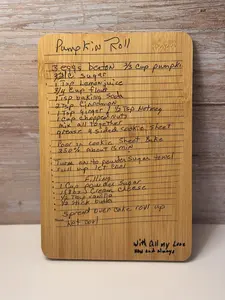 Pumpkin Roll
3 eggs beaten 2/3 cup pumpkin
sugar
1 Tsp Lemon juice
3/4 cup flour
1 Tsp baking Soda
2 Tsp Cinnamon
1 Tsp ginger / 1/2 Tsp Nutmeg
1 Cup chopped nuts
mix all together
grease 4 sided cookie sheet
Pour in cookie sheet Bake
350° about 15 min
Turn onto powder sugar towel
roll up let cool
Filling
1 cup powder sugar
cream cheese
Spread over cake roll up
With all my Love
and always